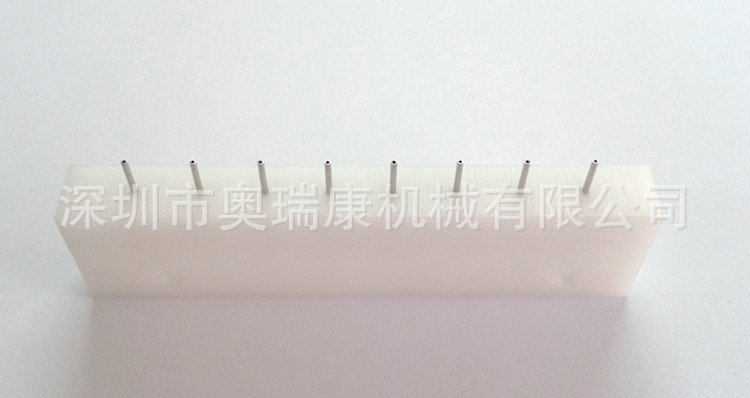 深圳市奥瑞康机械有限公司